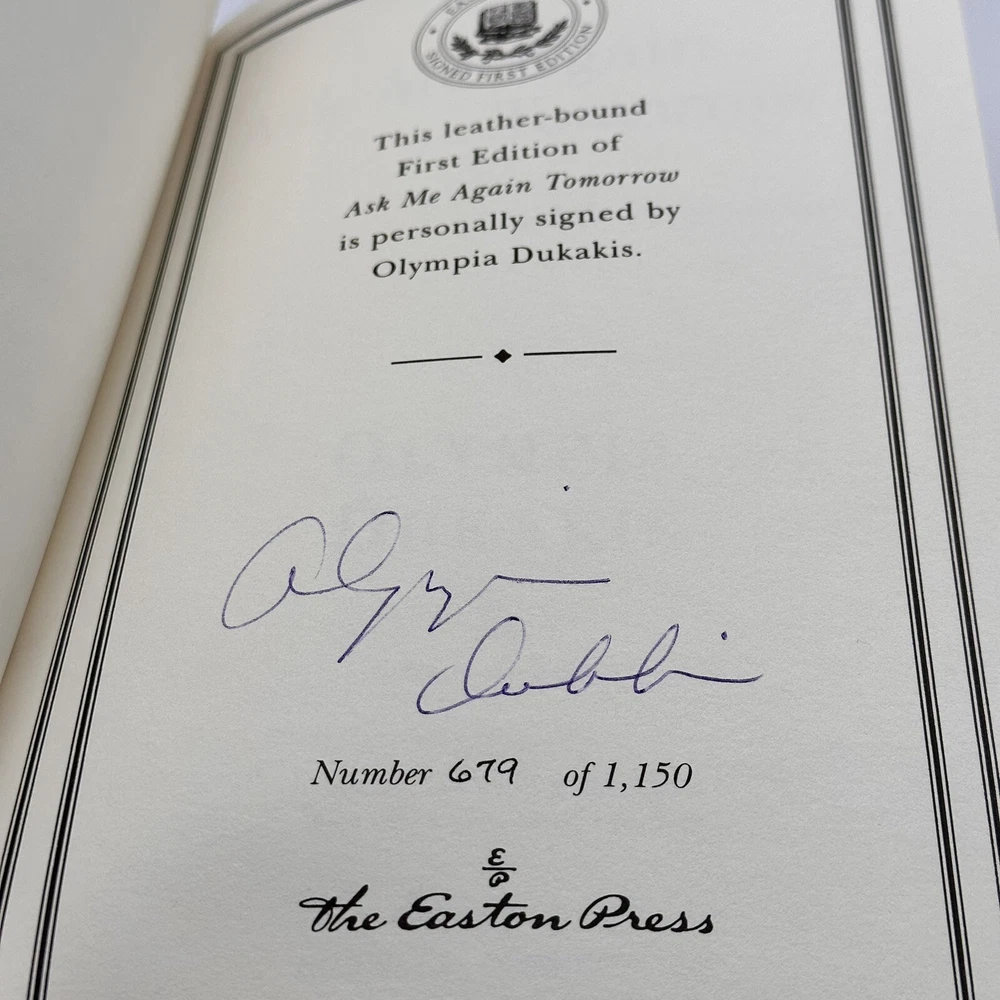 SIGNED FIRST EDITION
This leather-bound
First Edition of
Ask Me Again Tomorrow
is personally signed by
Olympia Dukakis.
Olympia
Dukakis
Number 679 of 1,150
EP
The Easton Press